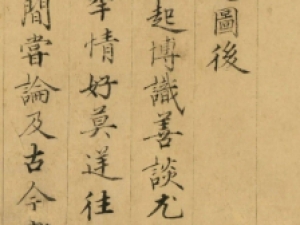 圖後
起博識善談尤
年情好莫逆往
間嘗論及古今